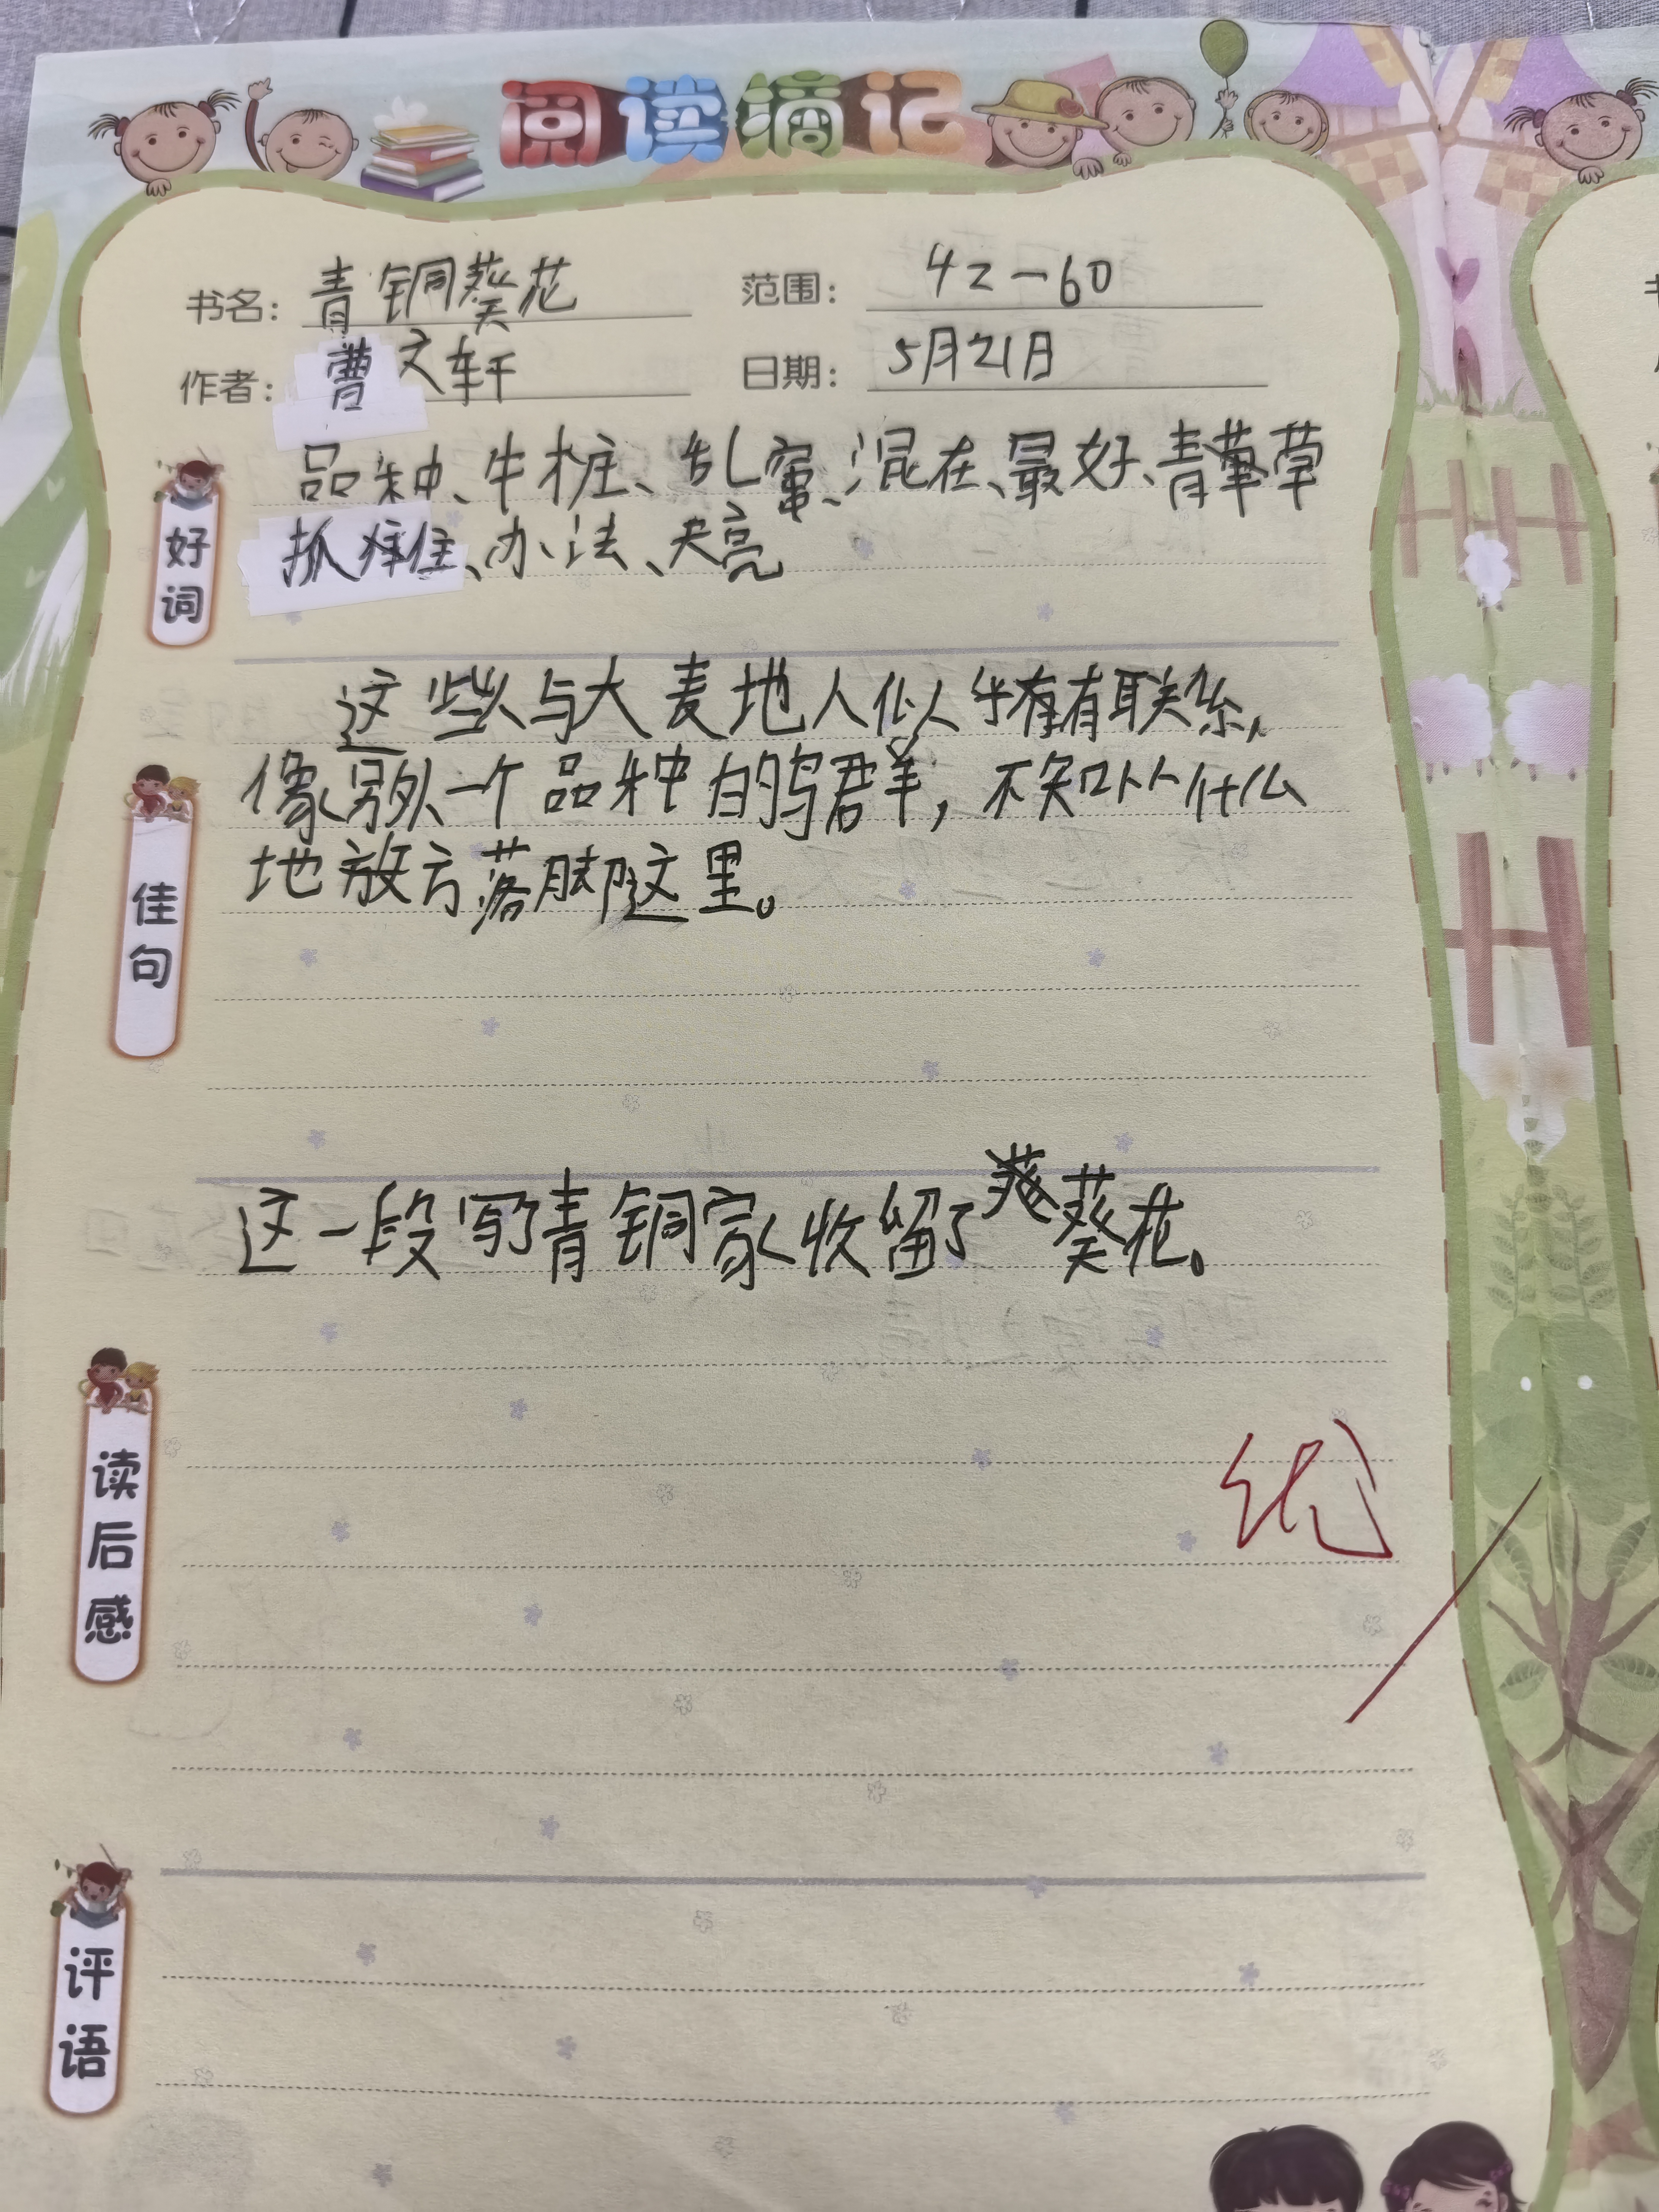 阅读摘记
书名： 青铜葵花 范围： 42—60
作者： 曹文轩 日期： 5月21日
好词
品种、牛桩、乱窜、混在、最好、青草
抓住、办法、天亮
佳句
这些人与大麦地人似乎有有联系，
像另外一个品种的鸟群，不知从什么
地放方落脚这里。
这一段写了青铜家收留了葵花。
读后感
优
评语